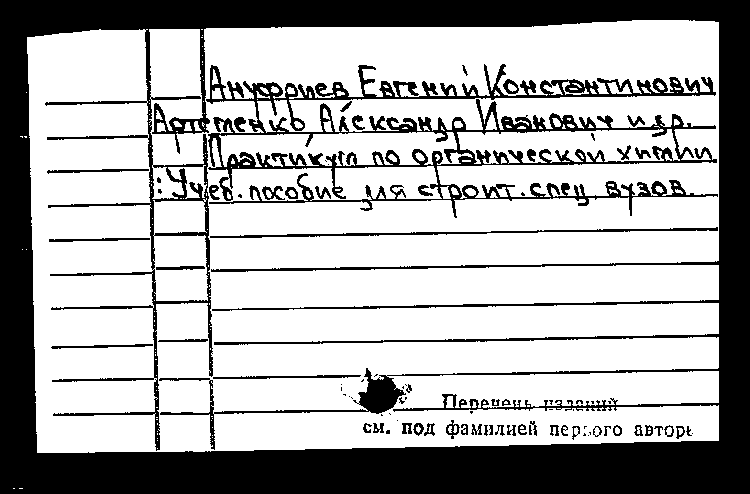 Ануфриев Евгений Константинович
Артеменко Александр Иванович и др.
Практикум по органической химии
: Учеб. пособие для строит. спец. вузов.
Перечень изданий
см. под фамилией первого автора